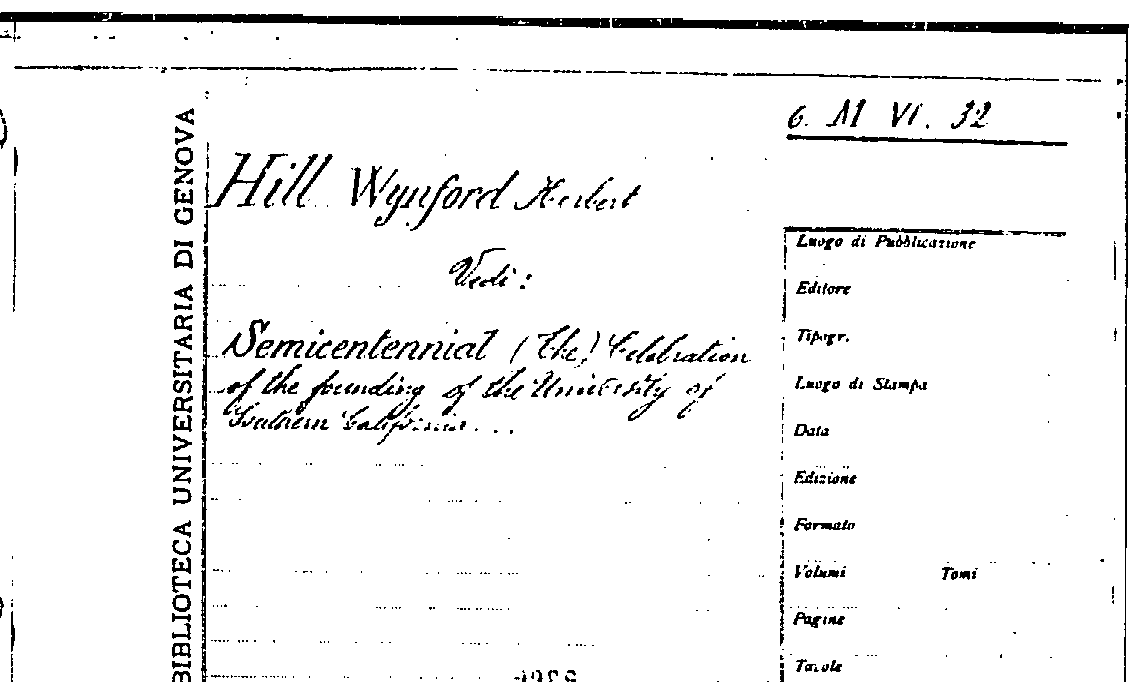 BIBLIOTECA UNIVERSITARIA DI GENOVA
6. M VI. 32
Hill Wynford Herbert
Vedi:
Semicentennial (The) Celebration
of the founding of the University of
Southern California...
Luogo di Pubblicazione
Editore
Tipogr.
Luogo di Stampa
Data
Edizione
Formato
Volumi Tomi
Pagine
Tavole